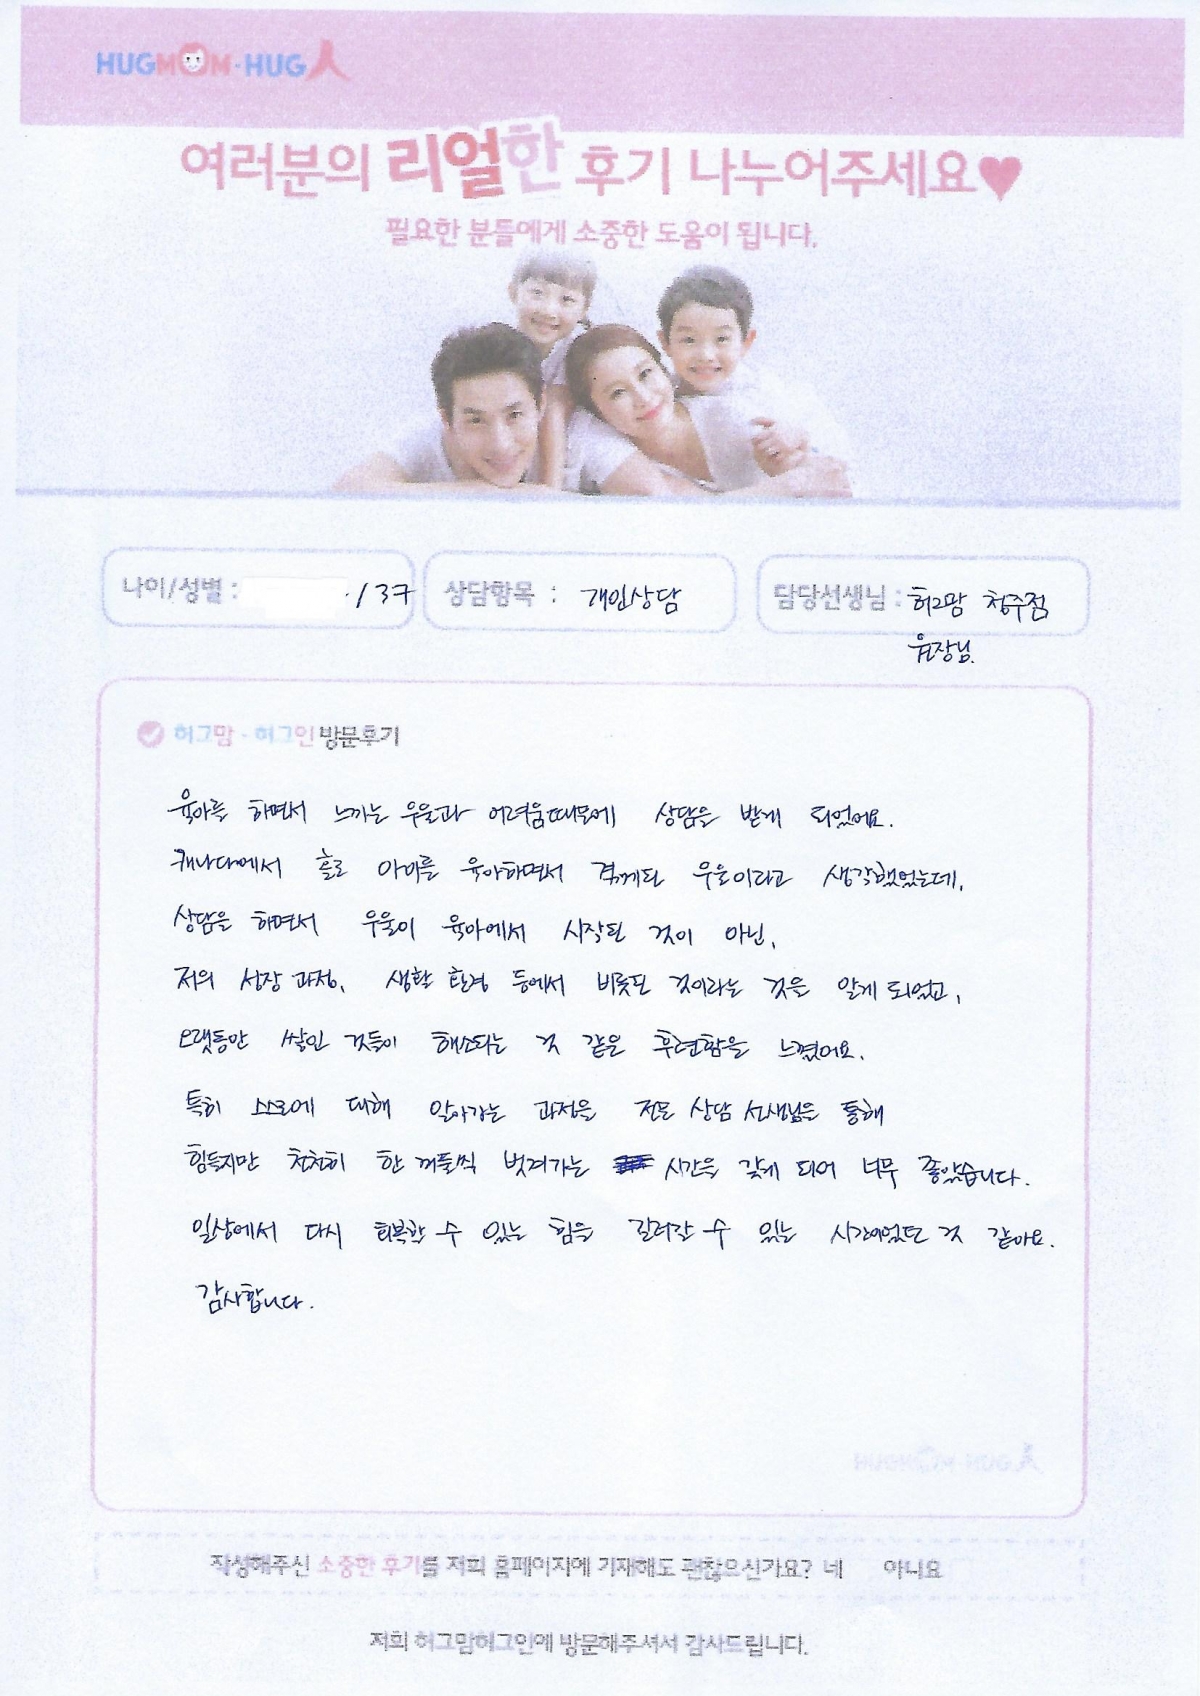 HUGMOM·HUG人
여러분의 리얼한 후기 나누어주세요♥
필요한 분들에게 소중한 도움이 됩니다.
나이/성별 : / 37
상담항목 : 개인상담
담당선생님 : 허그맘 청주점
원장님.
허그맘·허그인 방문후기
육아를 하면서 느끼는 우울과 어려움때문에 상담을 받게 되었어요.
캐나다에서 홀로 아이를 육아하면서 겪게된 우울이라고 생각했었는데,
상담을 하면서 우울이 육아에서 시작된 것이 아닌,
저의 성장 과정, 생활 환경 등에서 비롯된 것이라는 것을 알게 되었고,
오랫동안 쌓인 것들이 해소되는 것 같은 후련함을 느꼈어요.
특히 스스로에 대해 알아가는 과정을 전문 상담 선생님을 통해
힘들지만 천천히 한 꺼풀씩 벗겨가는 시간을 갖게 되어 너무 좋았습니다.
일상에서 다시 회복할 수 있는 힘을 길러갈 수 있는 시간이었던 것 같아요.
감사합니다.
작성해주신 소중한 후기를 저희 홈페이지에 기재해도 괜찮으신가요? 네 아니요
저희 허그맘허그인에 방문해주셔서 감사드립니다.